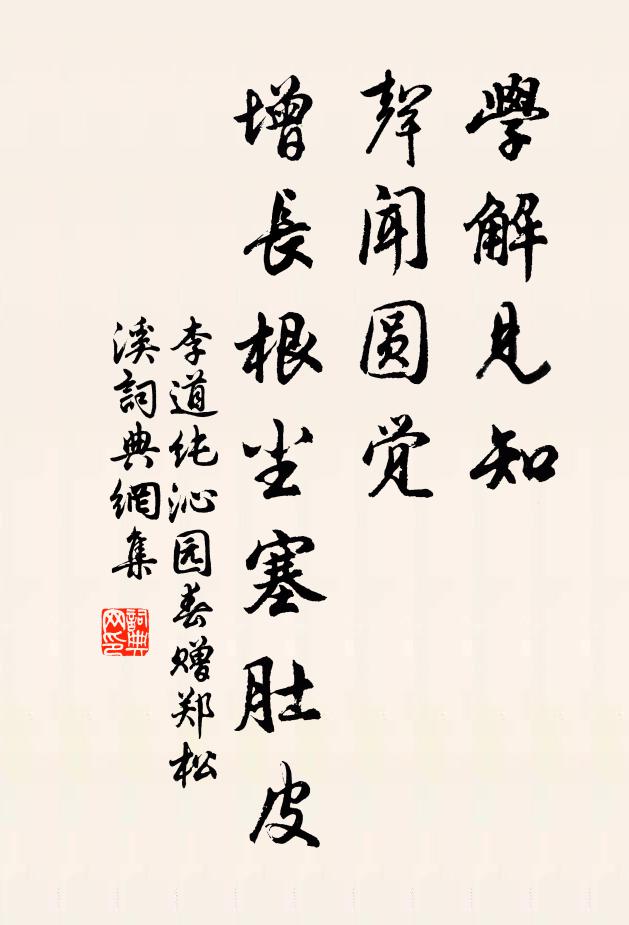 學解見知
聲聞圆覺
增長根尘塞肚皮
李道纯沁园春赠郑松
溪詞典網集
詞典网印